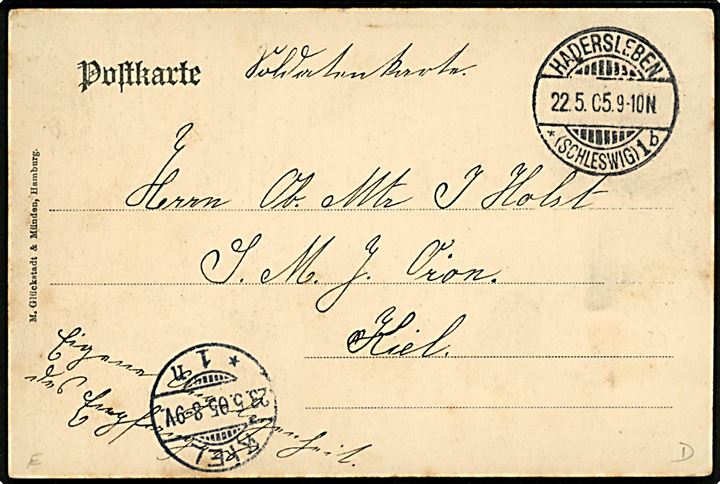 Postkarte
Soldatenkarte.
HADERSLEBEN
22.5.05.9-10N.
* (SCHLESWIG) 1b
Herrn Ob. Mtr J Holst
S. M. J. Orion.
Kiel.
Eigene Angelegenheit
des Empfängers.
KIEL
23.5.05.8-9V
* 1 n *
M. Glückstadt & Münden, Hamburg.
E
D